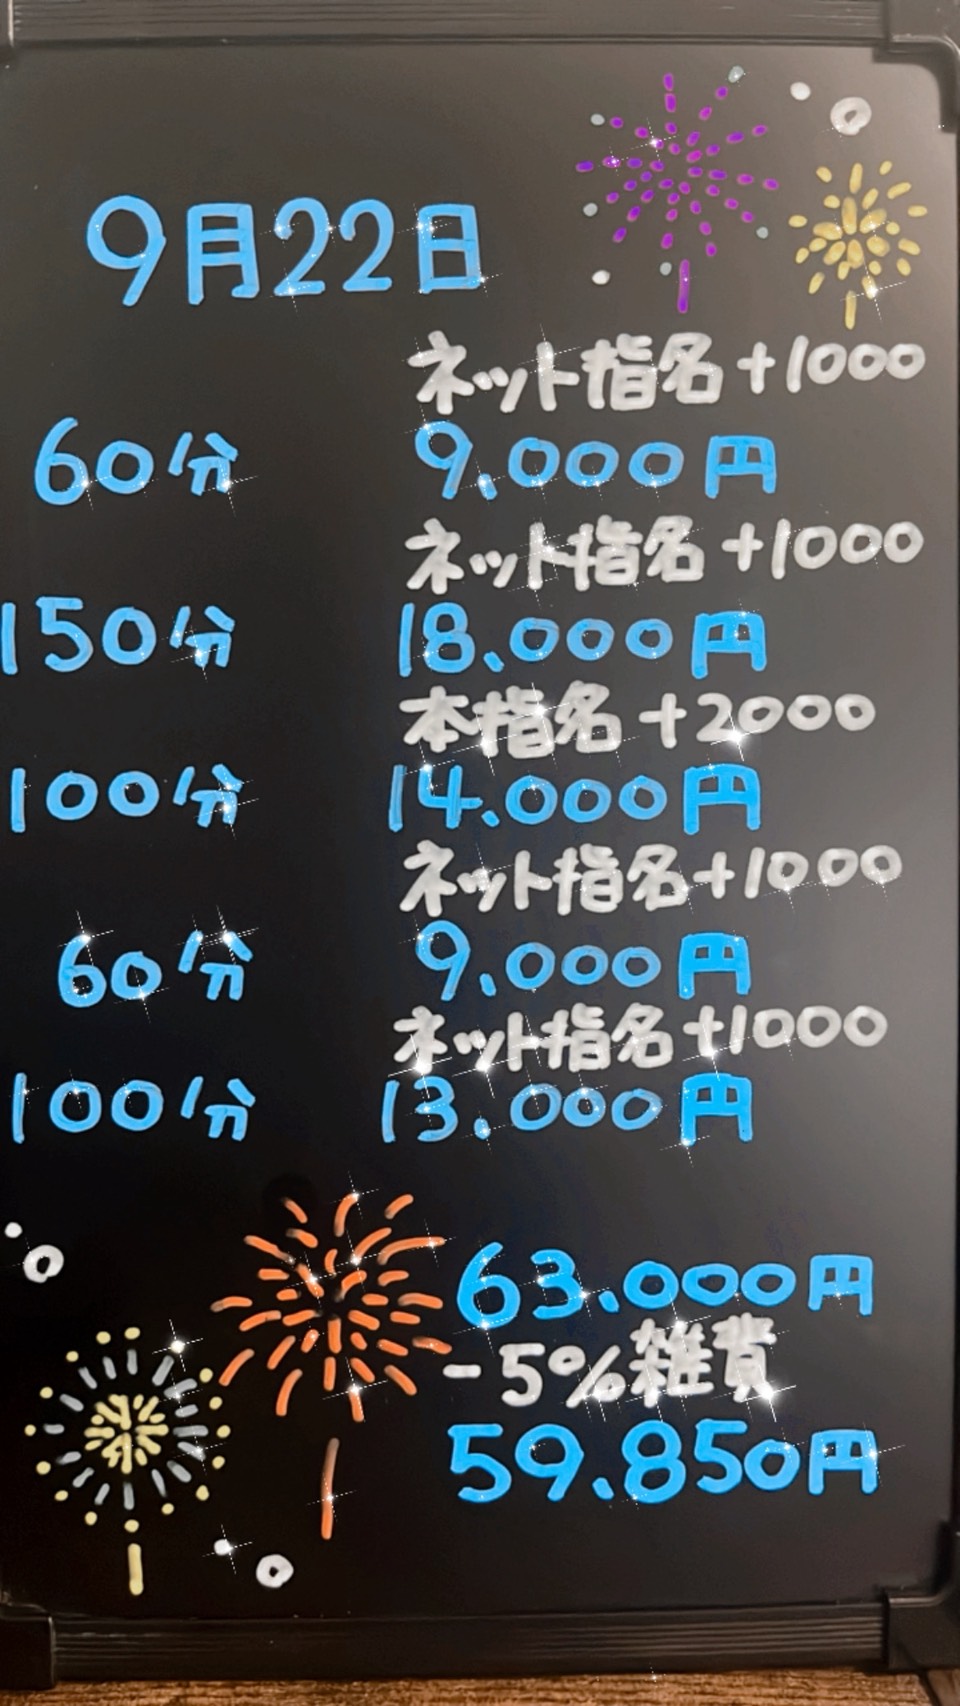 9月22日
ネット指名+1000
60分 9.000円
ネット指名+1000
150分 18.000円
本指名+2000
100分 14.000円
ネット指名+1000
60分 9.000円
ネット指名+1000
100分 13.000円
63.000円
-5%雑費
59.850円